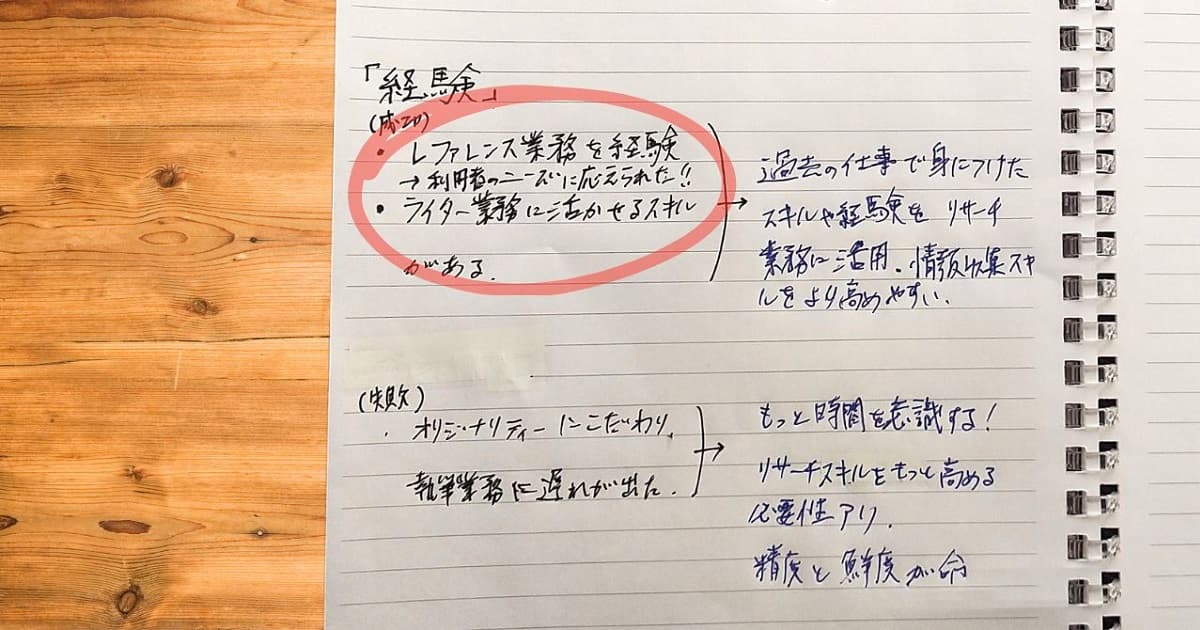 「経験」
(成功)
・ レファレンス業務を経験
→利用者のニーズに応えられた!!
・ ライター業務に活かせるスキル
がある.
→ 過去の仕事で身につけた
スキルや経験を リサーチ
業務に活用. 情報収集スキ
ルをより高めやすい.
(失敗)
・ オリジナリティーにこだわり,
執筆業務に遅れが出た.
→ もっと時間を意識する!
リサーチスキルをもっと高める
必要性アリ.
精度と鮮度が命